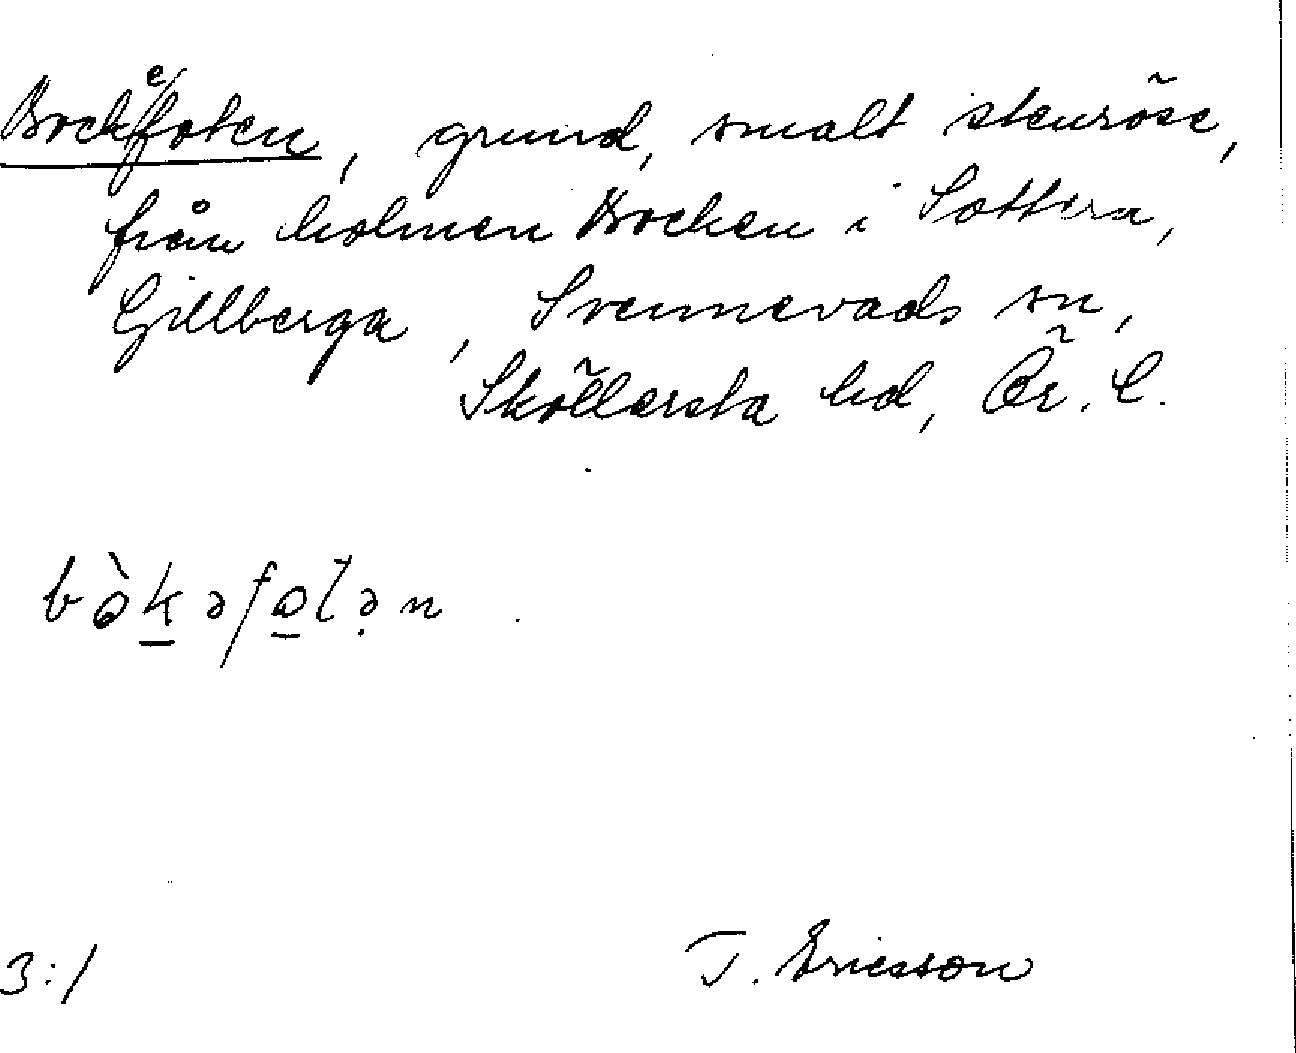 Bockefoten, grund, smalt stenröse,
från holmen Bocken i Sottern,
Gillberga, Svennevads sn,
Sköllersta hd, Ör. L.
bòkəfotən
3:1 T. Ericsson